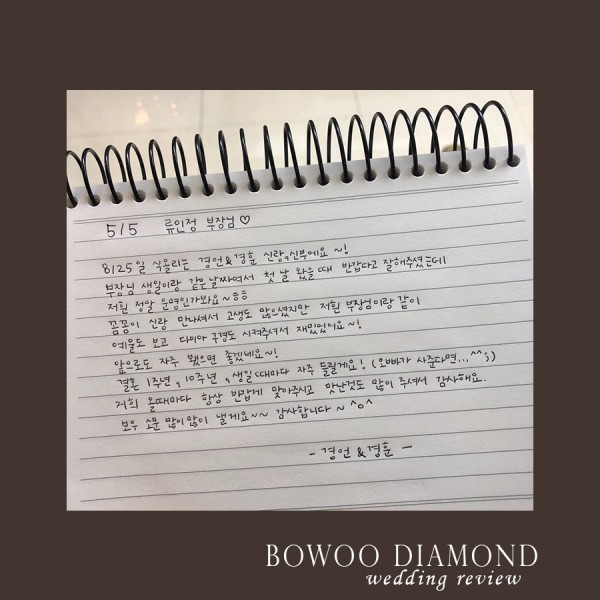 5/5 류인정 부장님 ♡
8/25일 식올리는 경언&경훈 신랑,신부에요 ~!
부장님 생일이랑 같은날짜여서 첫 날 왔을때 반갑다고 잘해주셨는데
저흰 정말 운명인가봐요~ㅎㅎ
꼼꼼이 신랑 만나셔서 고생도 많으셨지만 저흰 부장님이랑 같이
예물도 보고 다이아 구경도 시켜주셔서 재밌었어요~!
앞으로도 자주 뵀으면 좋겠네요~!
결혼 1주년, 10주년, 생일때마다 자주 들릴게요! (오빠가 사준다면...^^;)
저희 올때마다 항상 반갑게 맞아주시고 맛난것도 많이 주셔서 감사해요.
보우 소문 많이많이 낼게요~~ 감사합니다 ~ ^o^
- 경언 & 경훈 -
BOWOO DIAMOND
wedding review